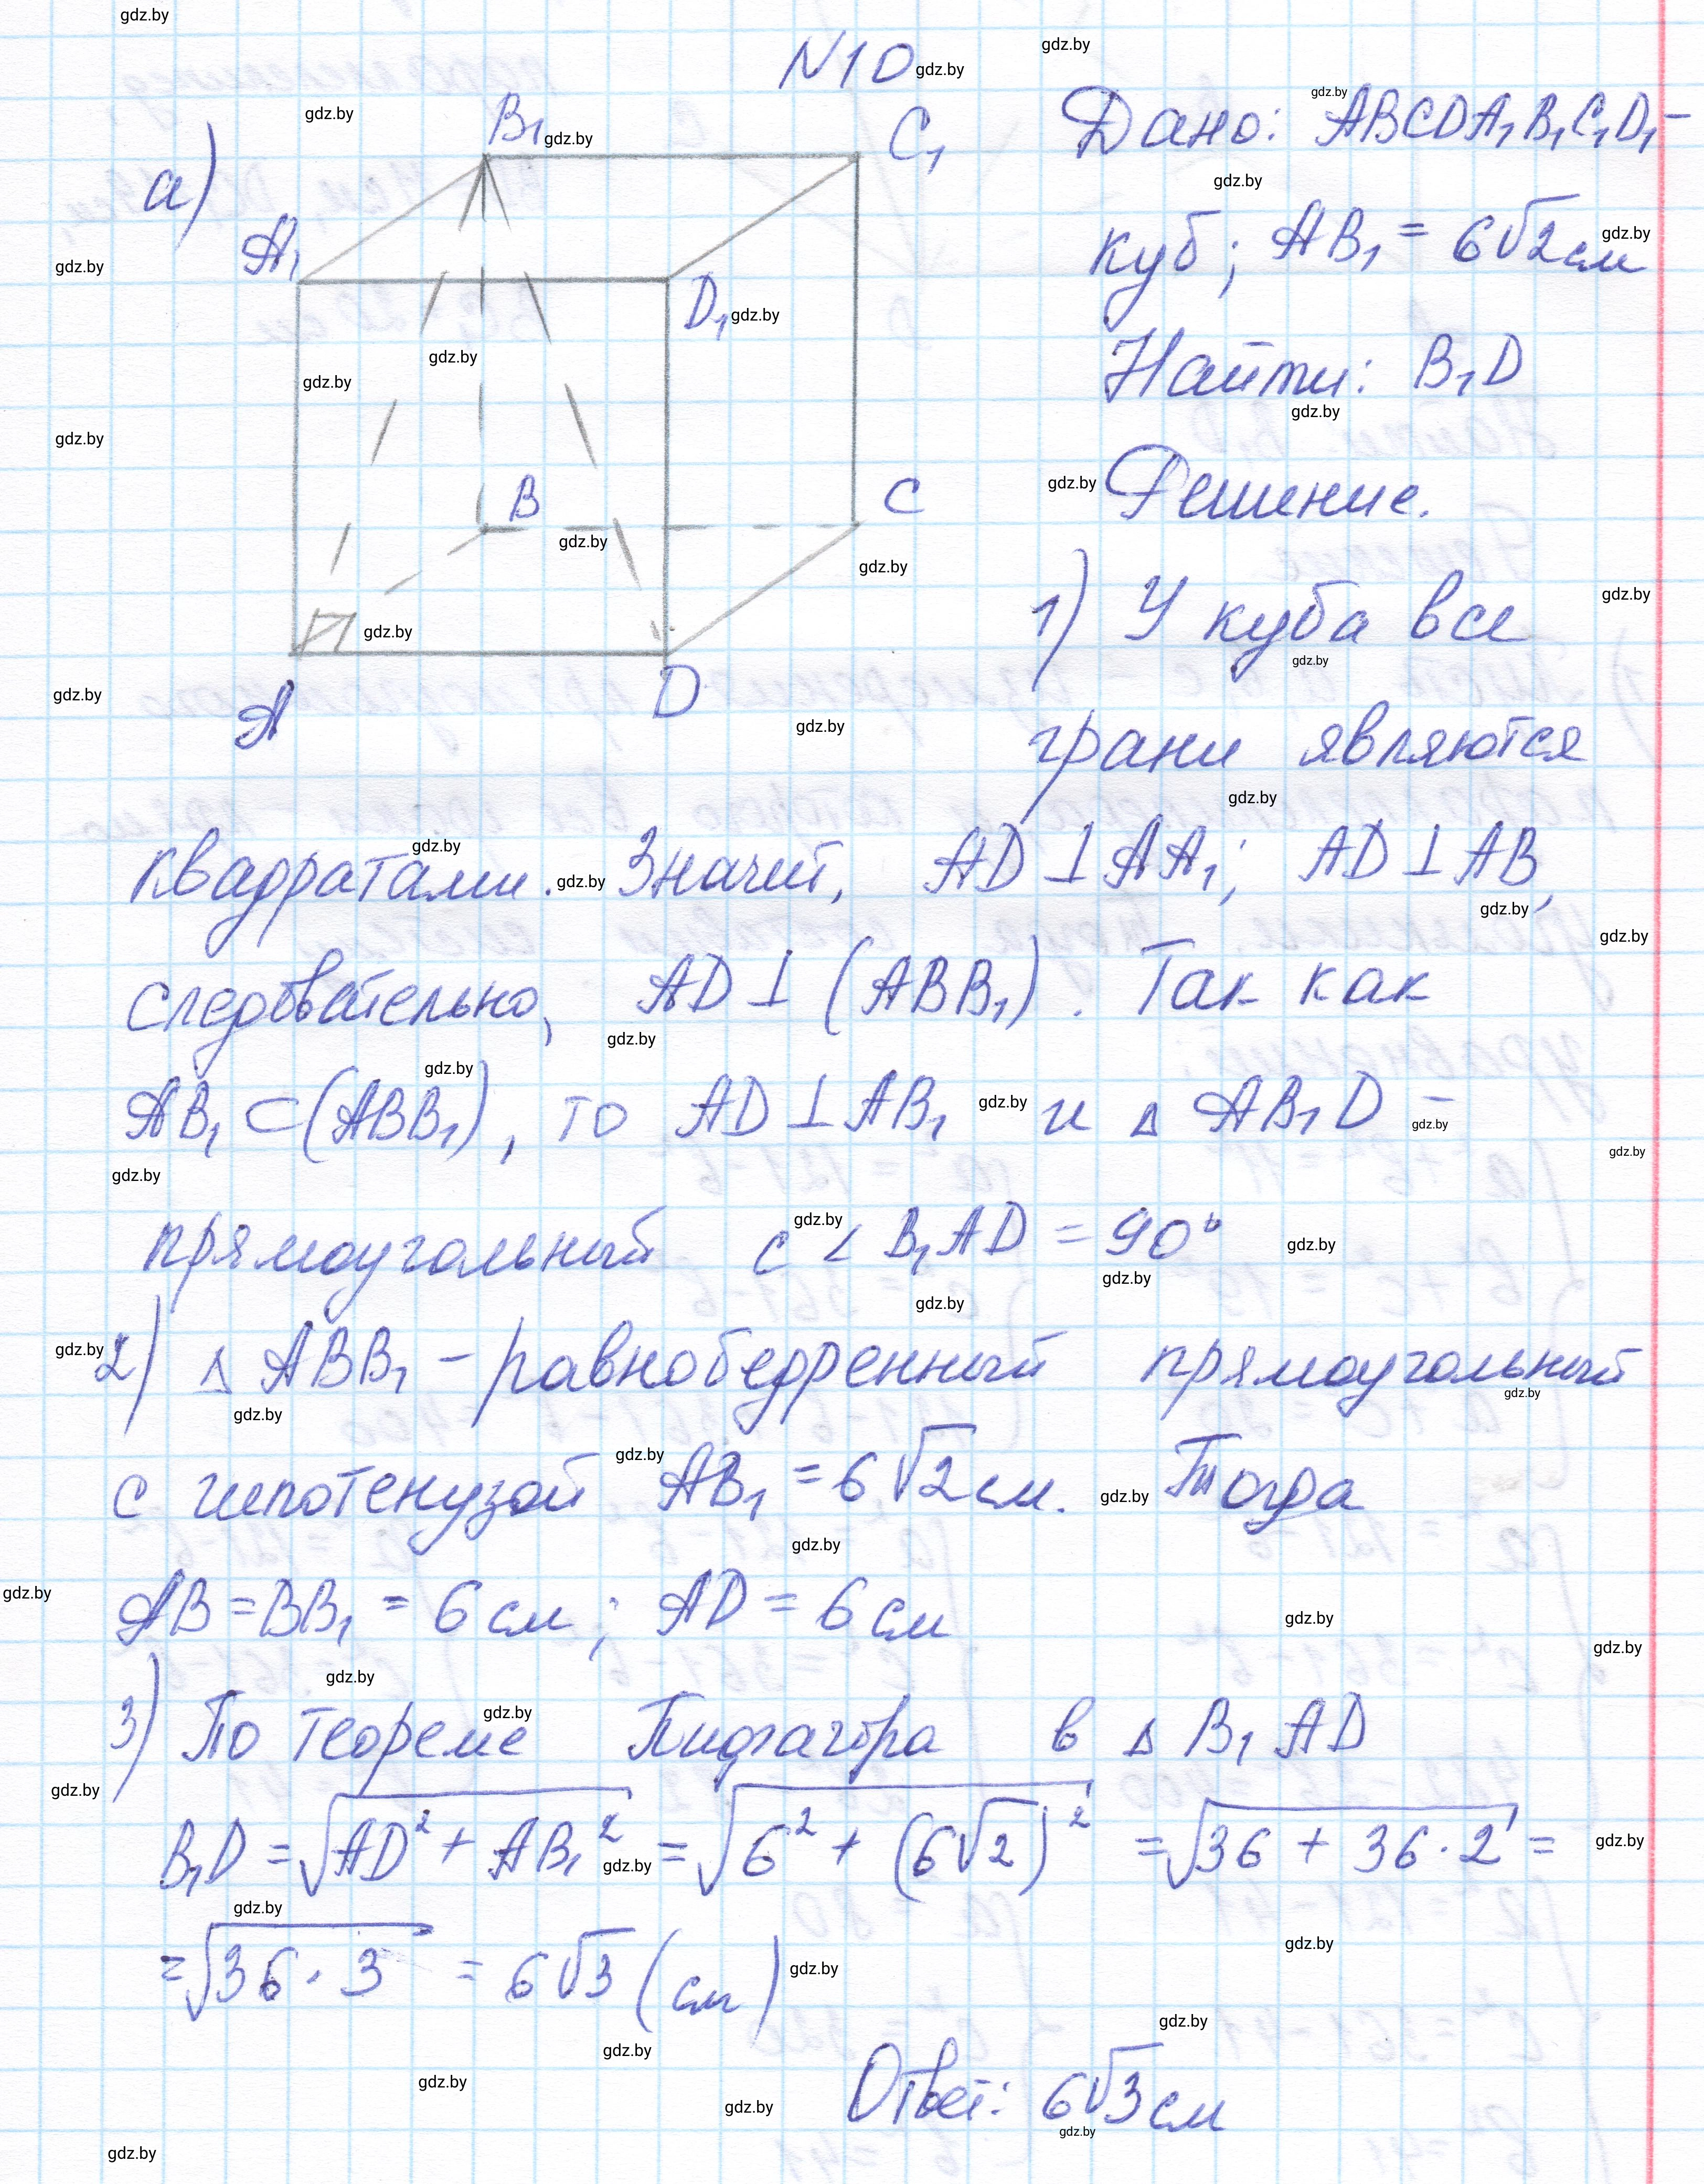 N10
а)
B₁
C₁
A₁
D₁
B
C
A
D
Дано: ABCDA₁B₁C₁D₁ –
куб; AB₁ = 6√2 см
Найти: B₁D
Решение.
1) У куба все
грани являются
квадратами. Значит, AD ⊥ AA₁; AD ⊥ AB,
следовательно, AD ⊥ (ABB₁). Так как
AB₁ ⊂ (ABB₁), то AD ⊥ AB₁ и Δ AB₁D –
прямоугольный с ∠ B₁AD = 90°
2) Δ ABB₁ – равнобедренный прямоугольный
с гипотенузой AB₁ = 6√2 см. Тогда
AB = BB₁ = 6 см; AD = 6 см
3) По теореме Пифагора в Δ B₁AD
B₁D = √(AD² + AB₁²) = √(6² + (6√2)²) = √(36 + 36·2) =
= √(36·3) = 6√3 (см)
Ответ: 6√3 см
gdz.by